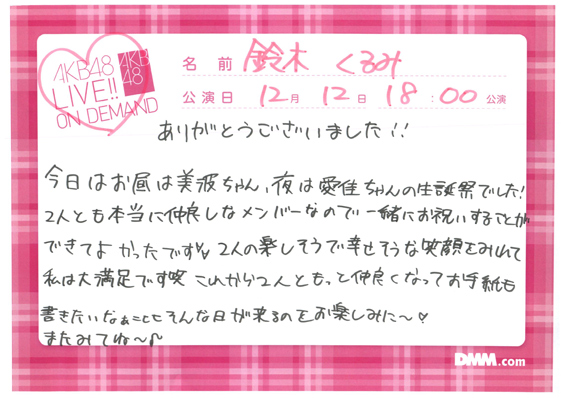 AKB48
LIVE!!
ON DEMAND
AKB
48
名前 鈴木 くるみ
公演日 12月 12日 18:00 公演
ありがとうございました!!
今日はお昼は美波ちゃん、夜は愛佳ちゃんの生誕祭でした!
2人とも本当に仲良しなメンバーなので一緒にお祝いすることが
できてよかったです 2人の楽しそうで幸せそうな笑顔をみれて
私は大満足です笑 これから2人ともっと仲良くなってお手紙も
書きたいなぁ そんな日が来るのをお楽しみに〜♡
またみてね〜♪
DMM.com